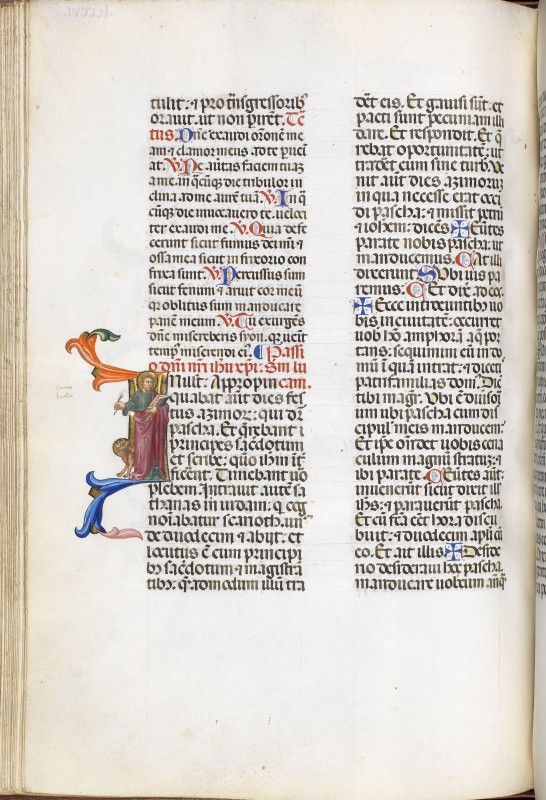 tulit: et pro t̃nsgressorib᷒
orauit. ut non pirẽt. Tc̃
tus. Dñe exaudi or̃onẽ me
am et clamor meus ad te pueni
at. V. Ne au̾tas faciem tuaz
a me in q̃cũq᷒ die tribulor in
clina ad me aurẽ tuã. V. In q̃
cũq᷒ die inuocauero te. ueloci
ter exaudi me. V. Quia defe
cerunt sicut fumus dies mi et
ossa mea sicut in frixorio con
frixa sunt. V. Percussus sum
sicut fenum et aruit cor meũ
q᷒ oblitus sum manducare
panẽ meum. V. Tu exurgẽs
dñe misereberis syon. q᷒ uẽit
temp᷒ miserendi ei᷒. Passi
o dñi nr̃i ihũ xp̃i. Sm̃ lu
cam.
N illo t̃. Appropin
quabat aũt dies fes
tus azimor: qui dr̃
pascha. Et q̃rebant
principes sac̃dotum
et scribe: quõ ihm̃ int̃
ficent. Timebant uo
plebem. Intrauit autẽ sa
thanas in iudam: q cog
noĩabatur scarioth. un᷒
de duodecim et abijt. et
locutus ẽ cum principi
b᷒ sac̃dotum et magistra
tib᷒: q̃madmodum illũ tra
det eis. Et gauisi sũt: et
pacti sunt pecuniam illi
dare. Et respondit. Et q̃
rebat oportunitatẽ: ut
tradet eum sine turb᷒. Ve
nit aũt dies azimoruz
in qua necesse erat occi
di pascha: et missit petrũ
et iohem: dicẽs ✠ Eũtes
parate nobis pascha: ut
manducemus. C At illi
dixerunt S Vbi uis pa
remus. C Et dix̃ ad eos.
✠ Ecce introeuntib᷒ uo
bis in ciuitatẽ: occurret
uob̃ hõ amphorã aq̃ por
tans: sequimini eũ in do
mũ ĩ quã intrat: et dicetis
patrifamilias dom᷒. Dic̃
tibi magr̃. Vbi ẽ diuso᷒
ium ubi pascha cum dis
cipul᷒ meis manducem̃.
Et ipe ondet uobis cena
culum magnũ stratũ: et
ibi parate. C Eũtes aũt:
inuenerũt sicut dixit illis
ihs: et parauerũt pascha.
Et cũ fc̃a eẽt hora discu
buit: et duodecim apl̃i cũ
eo. Et ait illis ✠ Deside
rio desideraui hoc pascha
manducare uobcum anq̃